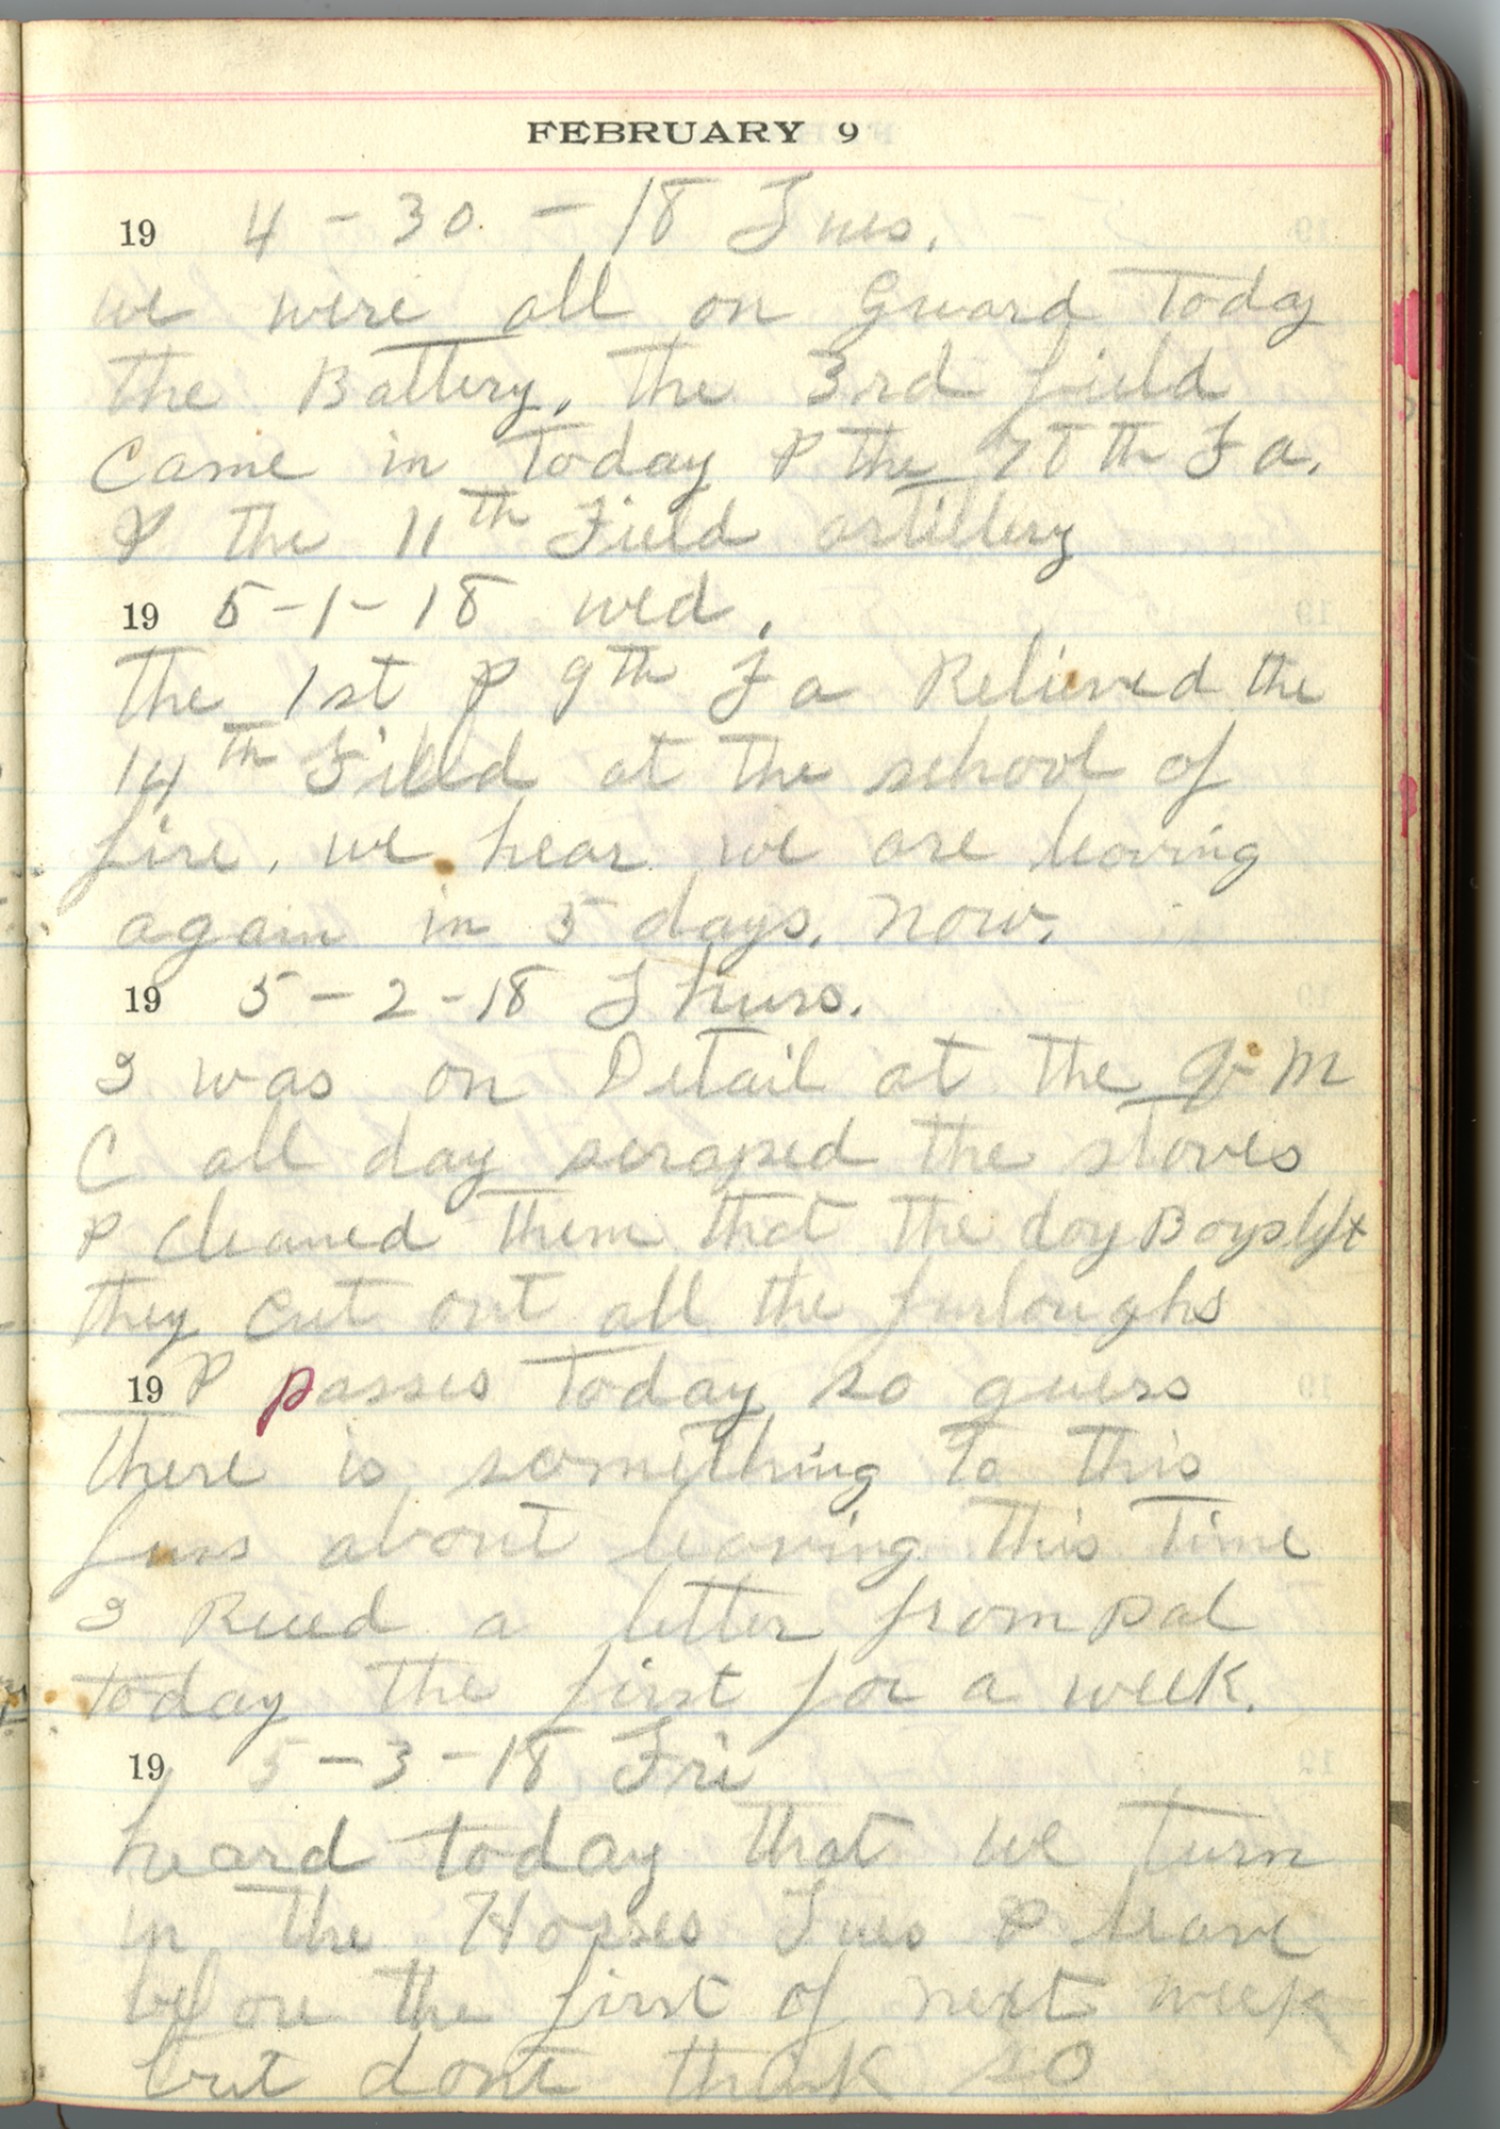 FEBRUARY 9
19 4-30-18 Tues.
we were all on Guard today
the Battery. the 3rd field
Came in today & the 78th Fa.
& the 11th Field artillery
19 5-1-18 wed.
The 1st & 9th Fa Relieved the
14th Field at the school of
fire. we hear we are leaving
again in 5 days. now.
19 5-2-18 Thurs.
I was on Detail at the Q M
C all day scraped the stoves
& cleaned them that the day Boys left
they cut out all the furloughs
19 & passes today so guess
there is something to this
fuss about leaving this time
I Recd a letter from pal
today the first for a week.
19 5-3-18 Fri
heard today that we turn
in the Horses Tues & leave
before the first of next week
but dont think so